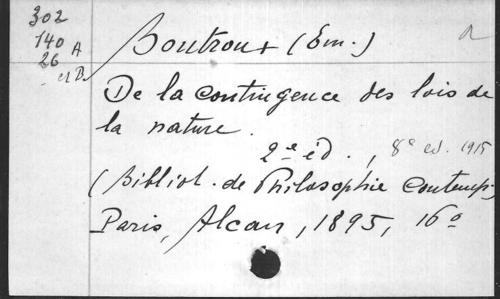 302
140 A
26
et B
Boutroux (Em.)
a
De la contingence des lois de
la nature.
2e éd., 8e ed. 1915
(Bibliot. de Philosophie Contemp.)
Paris, Alcan, 1895, 16o